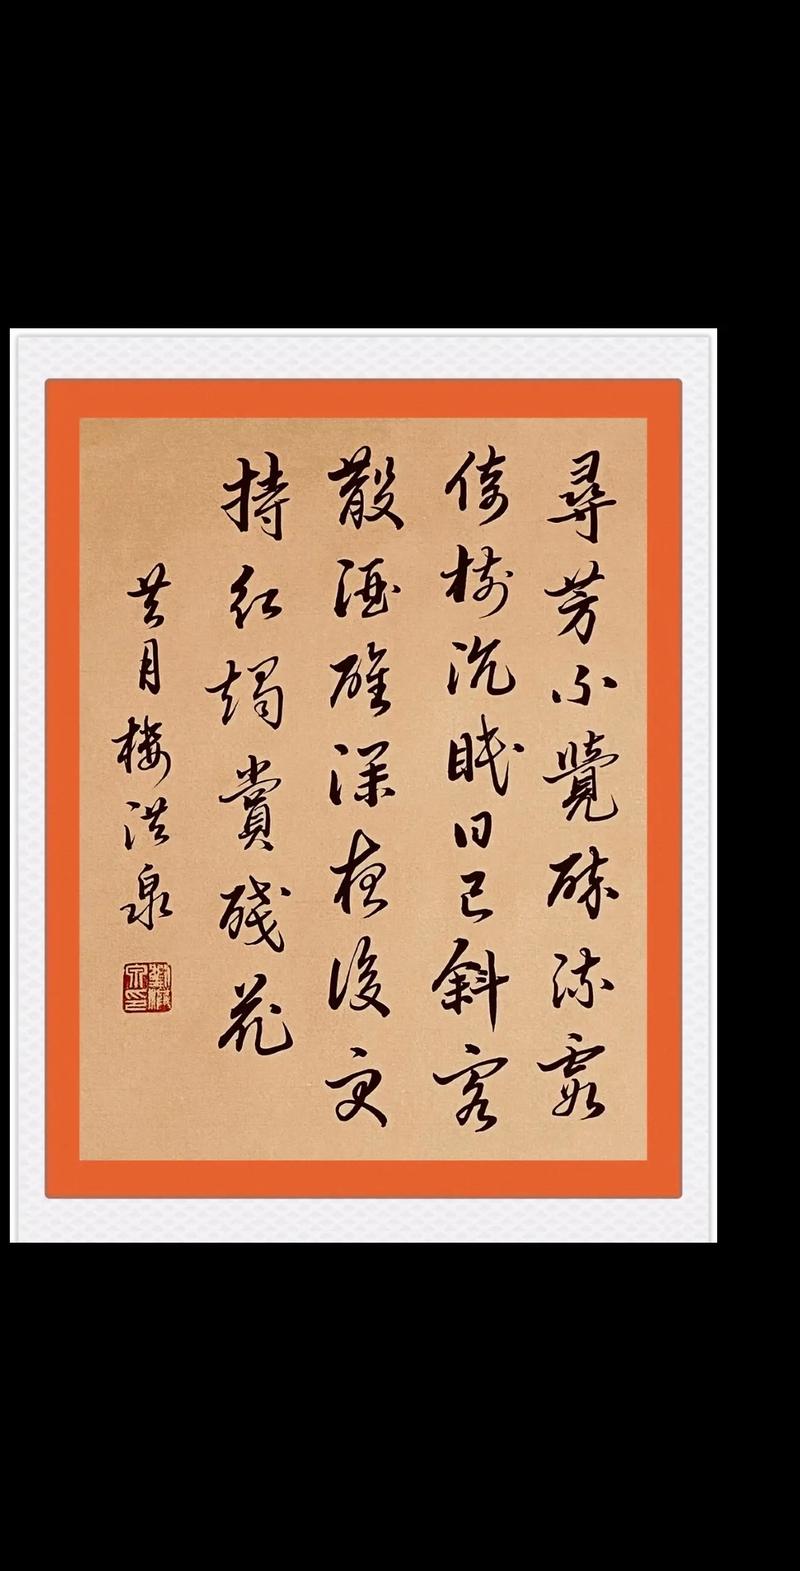 尋芳不覺醉流霞
倚樹沉眠日已斜客
散酒醒深夜後更
持紅燭賞殘花
共月樓洪泉